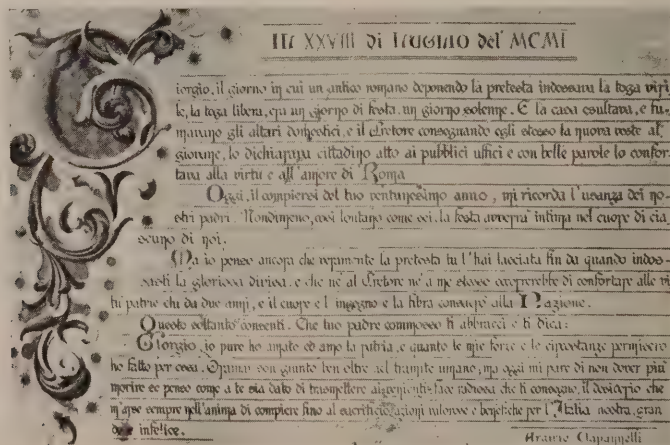 Il XXVIII di Giugno del MCMI
Giorgio, il giorno in cui un antico romano deponendo la pretesta indossava la toga viri
le, la toga libera, era un giorno di festa, un giorno solenne. E la casa esultava, e fu-
mavano gli altari domestici, e il Pretore consegnando egli stesso la nuova veste al
giovane, lo dichiarava cittadino atto ai pubblici uffici e con belle parole lo confor
tava alla virtù e all'amore di Roma
Oggi, il compiersi del tuo ventunesimo anno, mi ricorda l'usanza dei no-
stri padri. Nondimeno, così lontano come sei, la festa avverrà intima nel cuore di cia
scuno di noi.
Ma io penso ancora che veramente la pretesta tu l'hai lasciata fin da quando indos-
sasti la gloriosa divisa, e che nè al Pretore nè a me stesso occorrerebbe di confortare alle vir
tù patrie chi da due anni, e il cuore e l'ingegno e la fibra consacrò alla Nazione.
Questo soltanto consenti. Che tuo padre commosso ti abbracci e ti dica:
Giorgio, io pure ho amato ed amo la patria, e quanto le mie forze e le circostanze permisero
ho fatto per essa. Oramai son giunto ben oltre nel tramite umano, ma oggi mi pare di non dover più
morire se penso come a te sia dato di trasmettere ai face radiosa che ti consegno, il desiderio che
m'arse sempre nell'anima di compiere fino al sacrificio azioni valorose e benefiche per l'Italia nostra, gran
de e infelice.
Ciapannelli